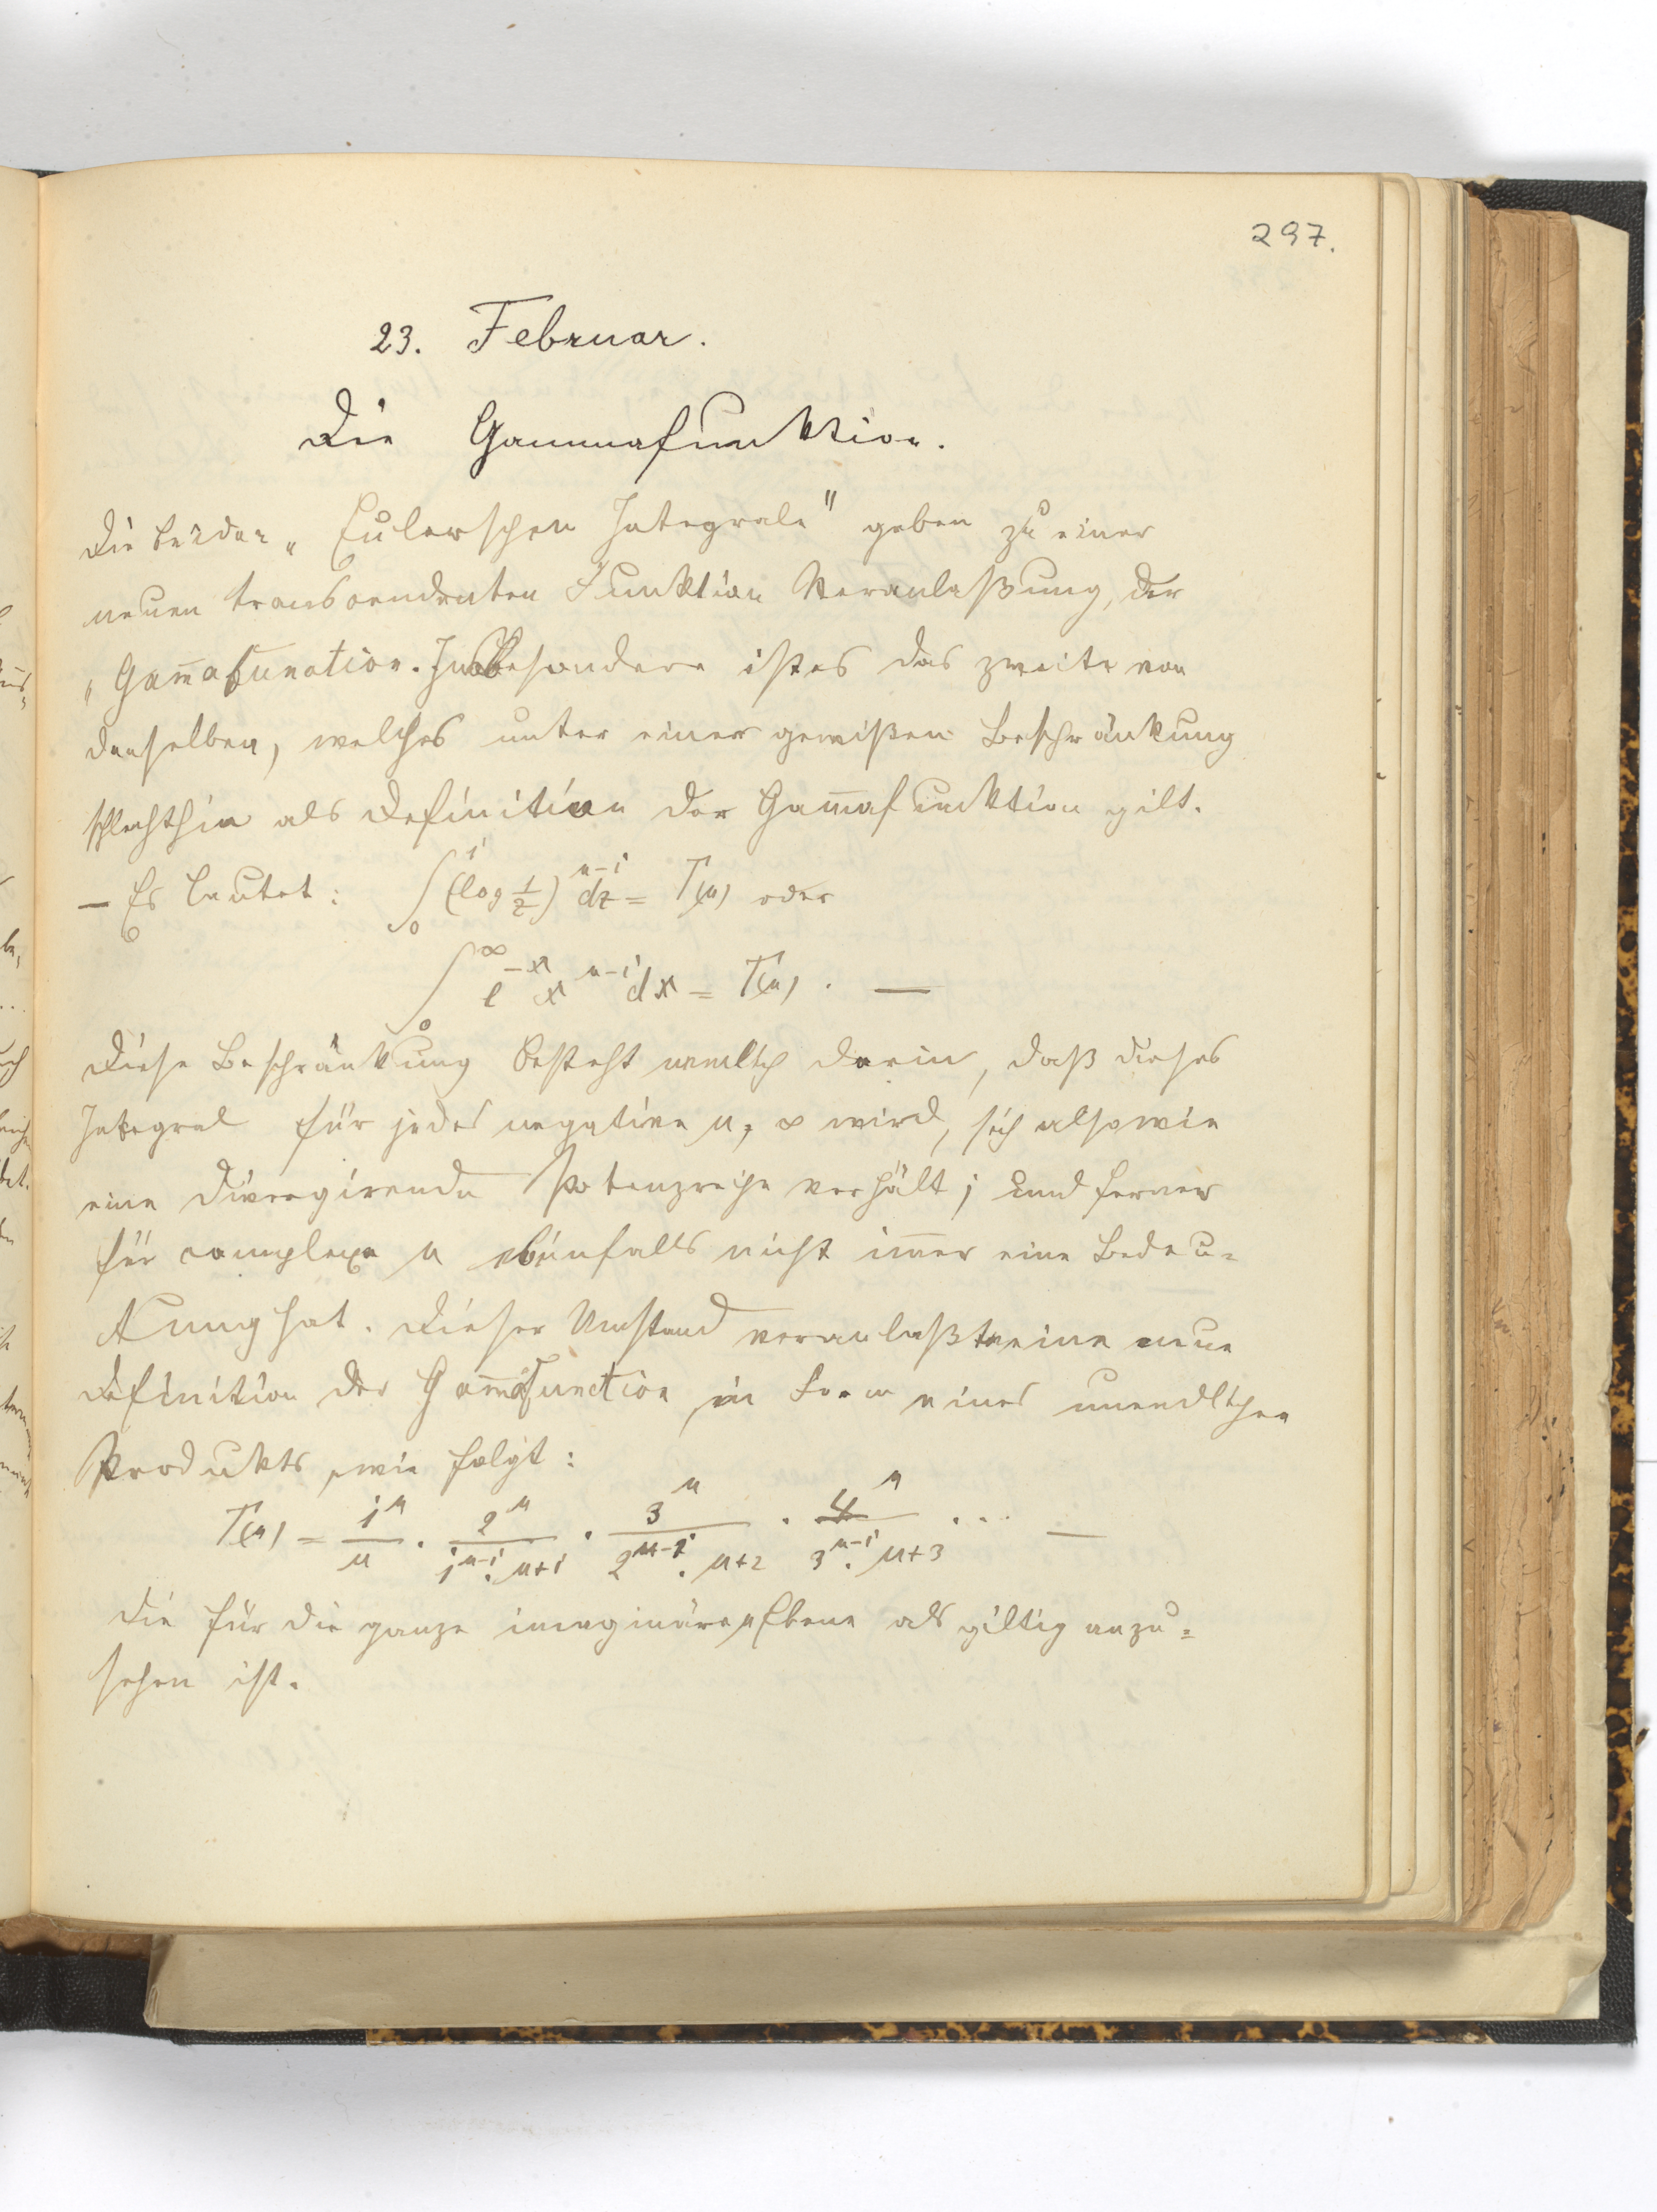 297.
23. Februar.
Die Gammafunktion.
Die beiden „Eulerschen Integrale" geben zu einer
neuen transcendenten Funktion Veranlaßung, der
„Gam̅afunction. Insbesondere ist es das zweite von
denselben, welches unter einer gewißen Beschränkung
schlechthin als Definition der Gam̅afunktion gilt.
— Es lautet: ∫₀¹ (log 1/z)ⁿ⁻¹ dz = Γ(n) oder
∫₀^∞ e⁻ˣ xⁿ⁻¹ dx = Γ(n). —
Diese Beschränkung besteht nemlich darin, daß dieses
Integral für jedes negative n, ∞ wird, sich also wie
eine divergirende Potenzreihe verhält; und ferner
für complexe n ebenfalls nicht im̅er eine Bedeu=
tung hat. Dieser Umstand veranlaßte eine neue
Definition der Gam̅afunction in Form eines unendlichen
Produkts, wie folgt:
Γ(n) = 1ⁿ/n · 2ⁿ/(1ⁿ⁻¹·n+1) · 3ⁿ/(2ⁿ⁻¹·n+2) · 4ⁿ/(3ⁿ⁻¹·n+3) · ... —
die für die ganze imaginäre Ebene als giltig anzu=
sehen ist.